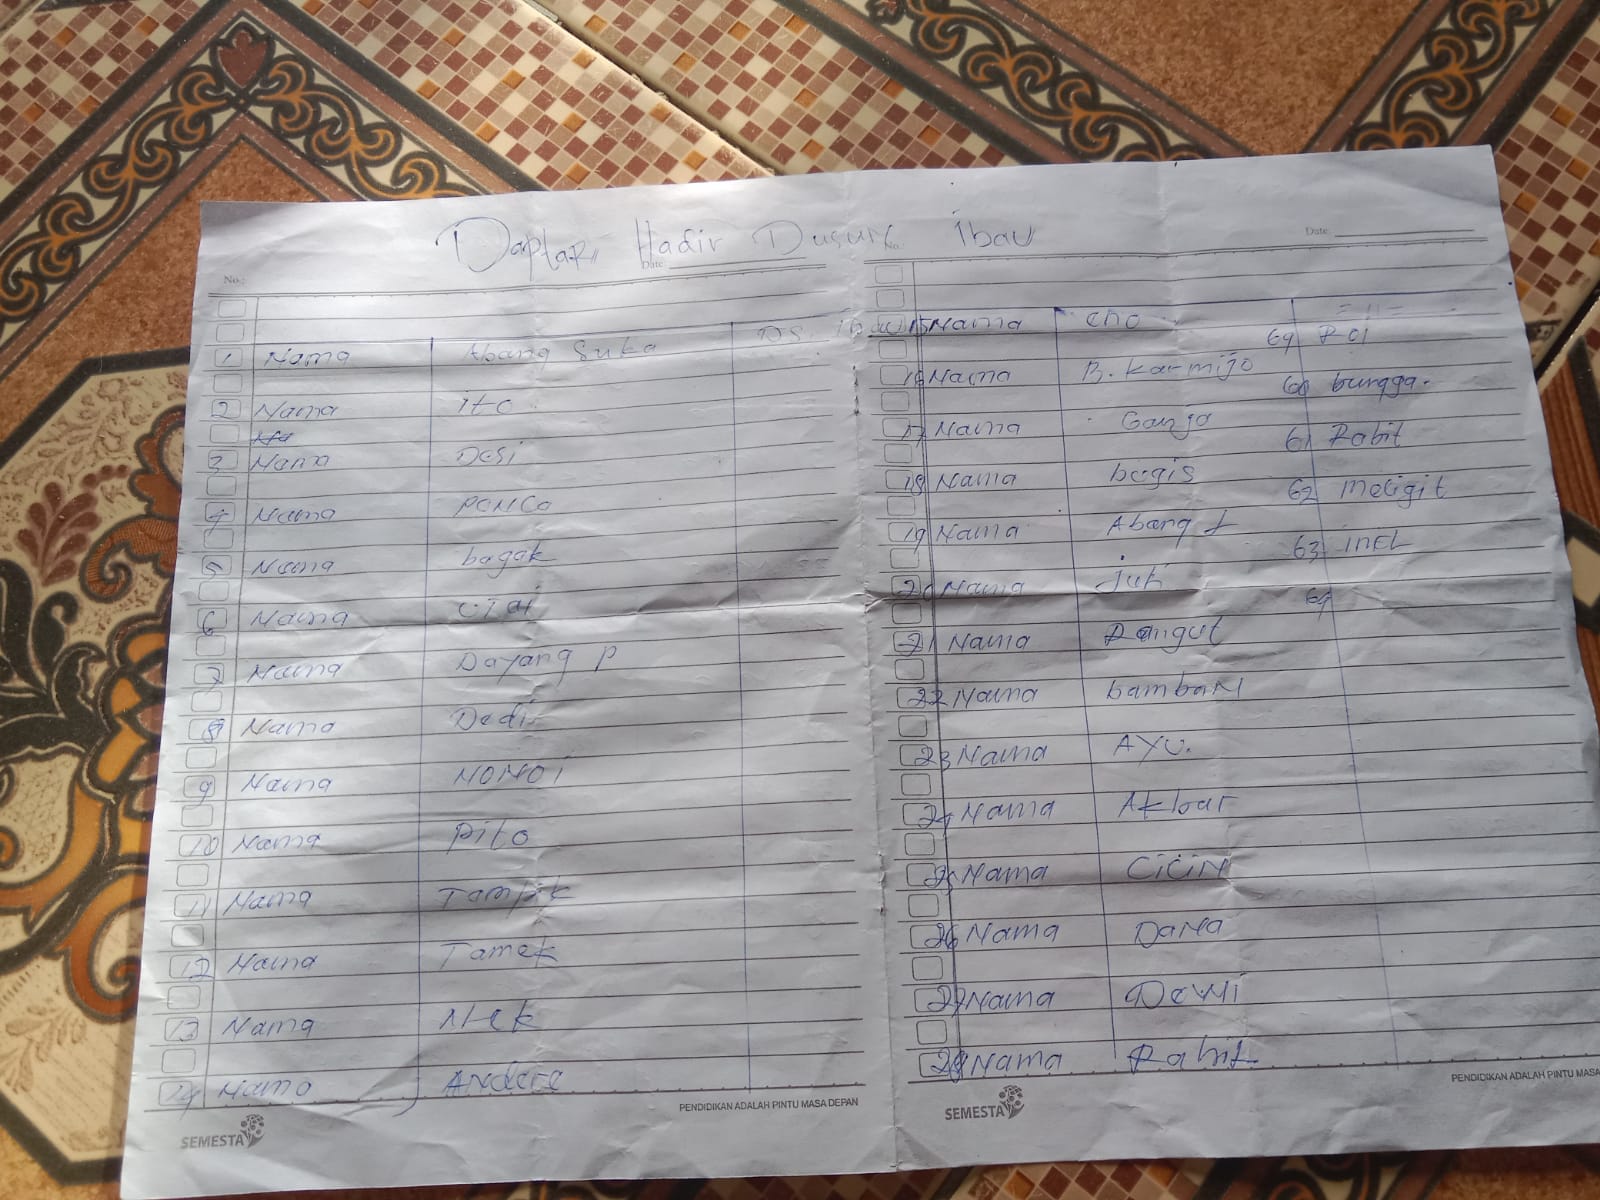 Daptar Hadir Dusun Ibau
No.:
Date:
1 Nama Abang Suka DS. Ibau
2 Nama ito
3 Nama Desi
4 Nama PONCO
5 Nama bagak
6 Nama
7 Nama Dayang P
8 Nama Dedi
9 Nama NONOi
10 Nama Pito
11 Nama Tampik
12 Nama Tamek
13 Nama NEk
14 Nama ANdere
SEMESTA
PENDIDIKAN ADALAH PINTU MASA DEPAN
No.:
Date:
15 Nama eno
Roi
16 Nama B. karmijo
60 bungga.
17 Nama Ganjo
61 Rabit
18 Nama begis
62 Meligit
19 Nama Abang
63 INEL
20 Nama juti
64
21 Nama Rangut
22 Nama bambaN
23 Nama AYU.
24 Nama Akbar
25 Nama CiCiN
26 Nama DaNa
27 Nama DeWi
28 Nama Rabit
SEMESTA
PENDIDIKAN ADALAH PINTU MASA